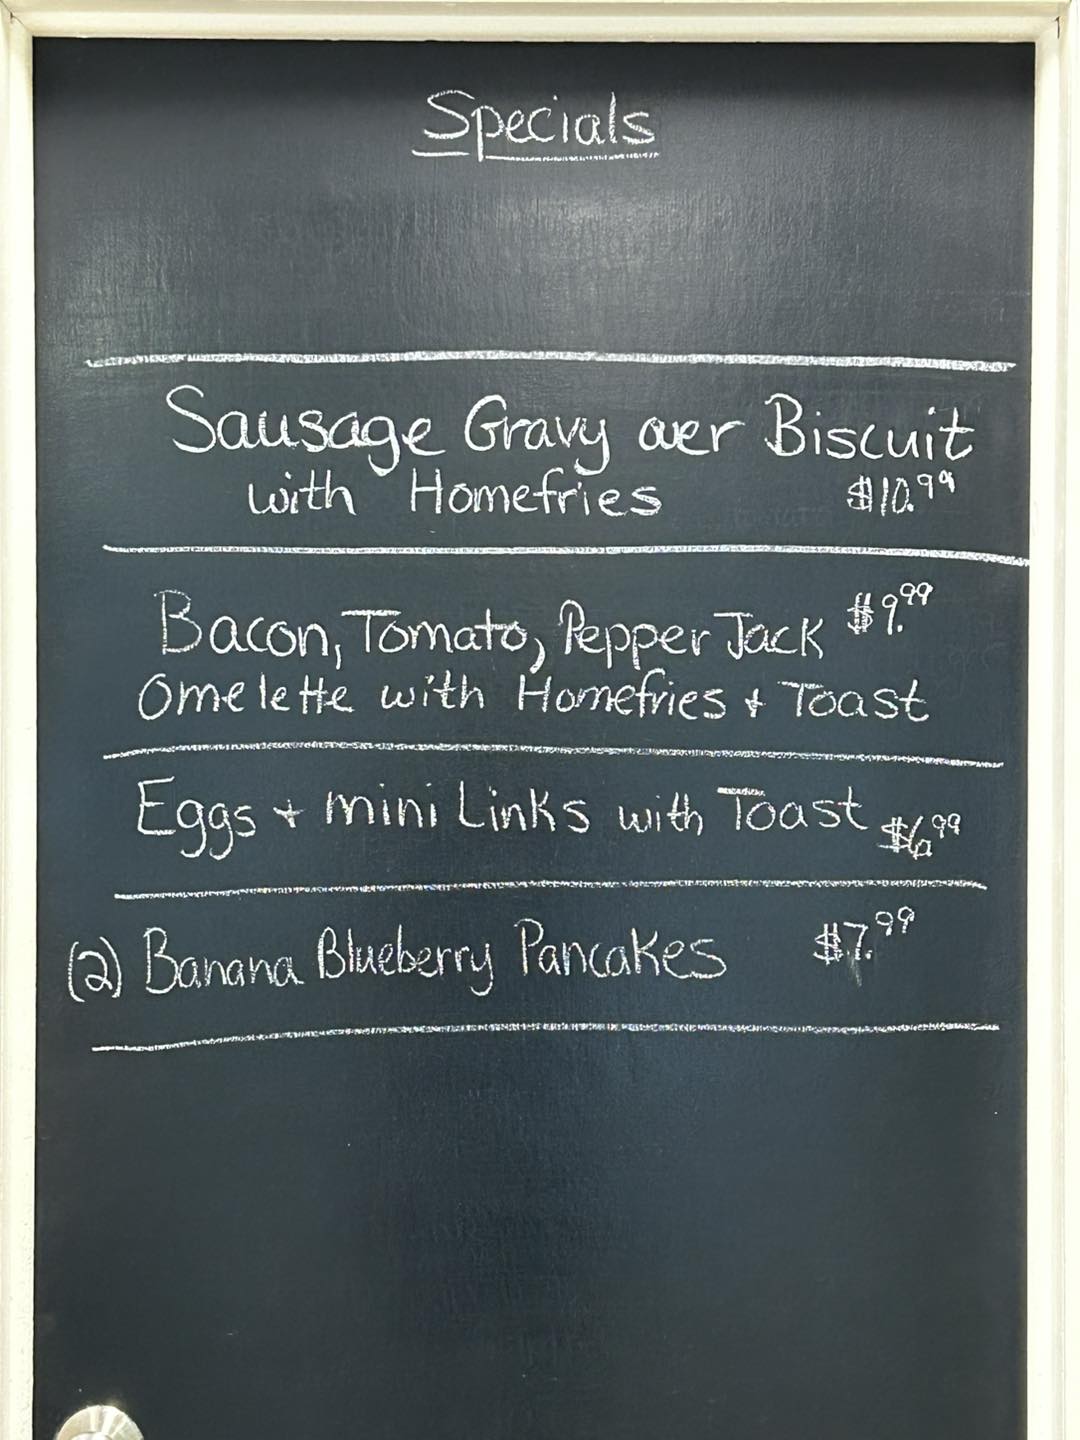 Specials
Sausage Gravy over Biscuit
with Homefries $10.99
Bacon, Tomato, Pepper Jack $9.99
Omelette with Homefries + Toast
Eggs + mini Links with Toast $6.99
(2) Banana Blueberry Pancakes $7.99